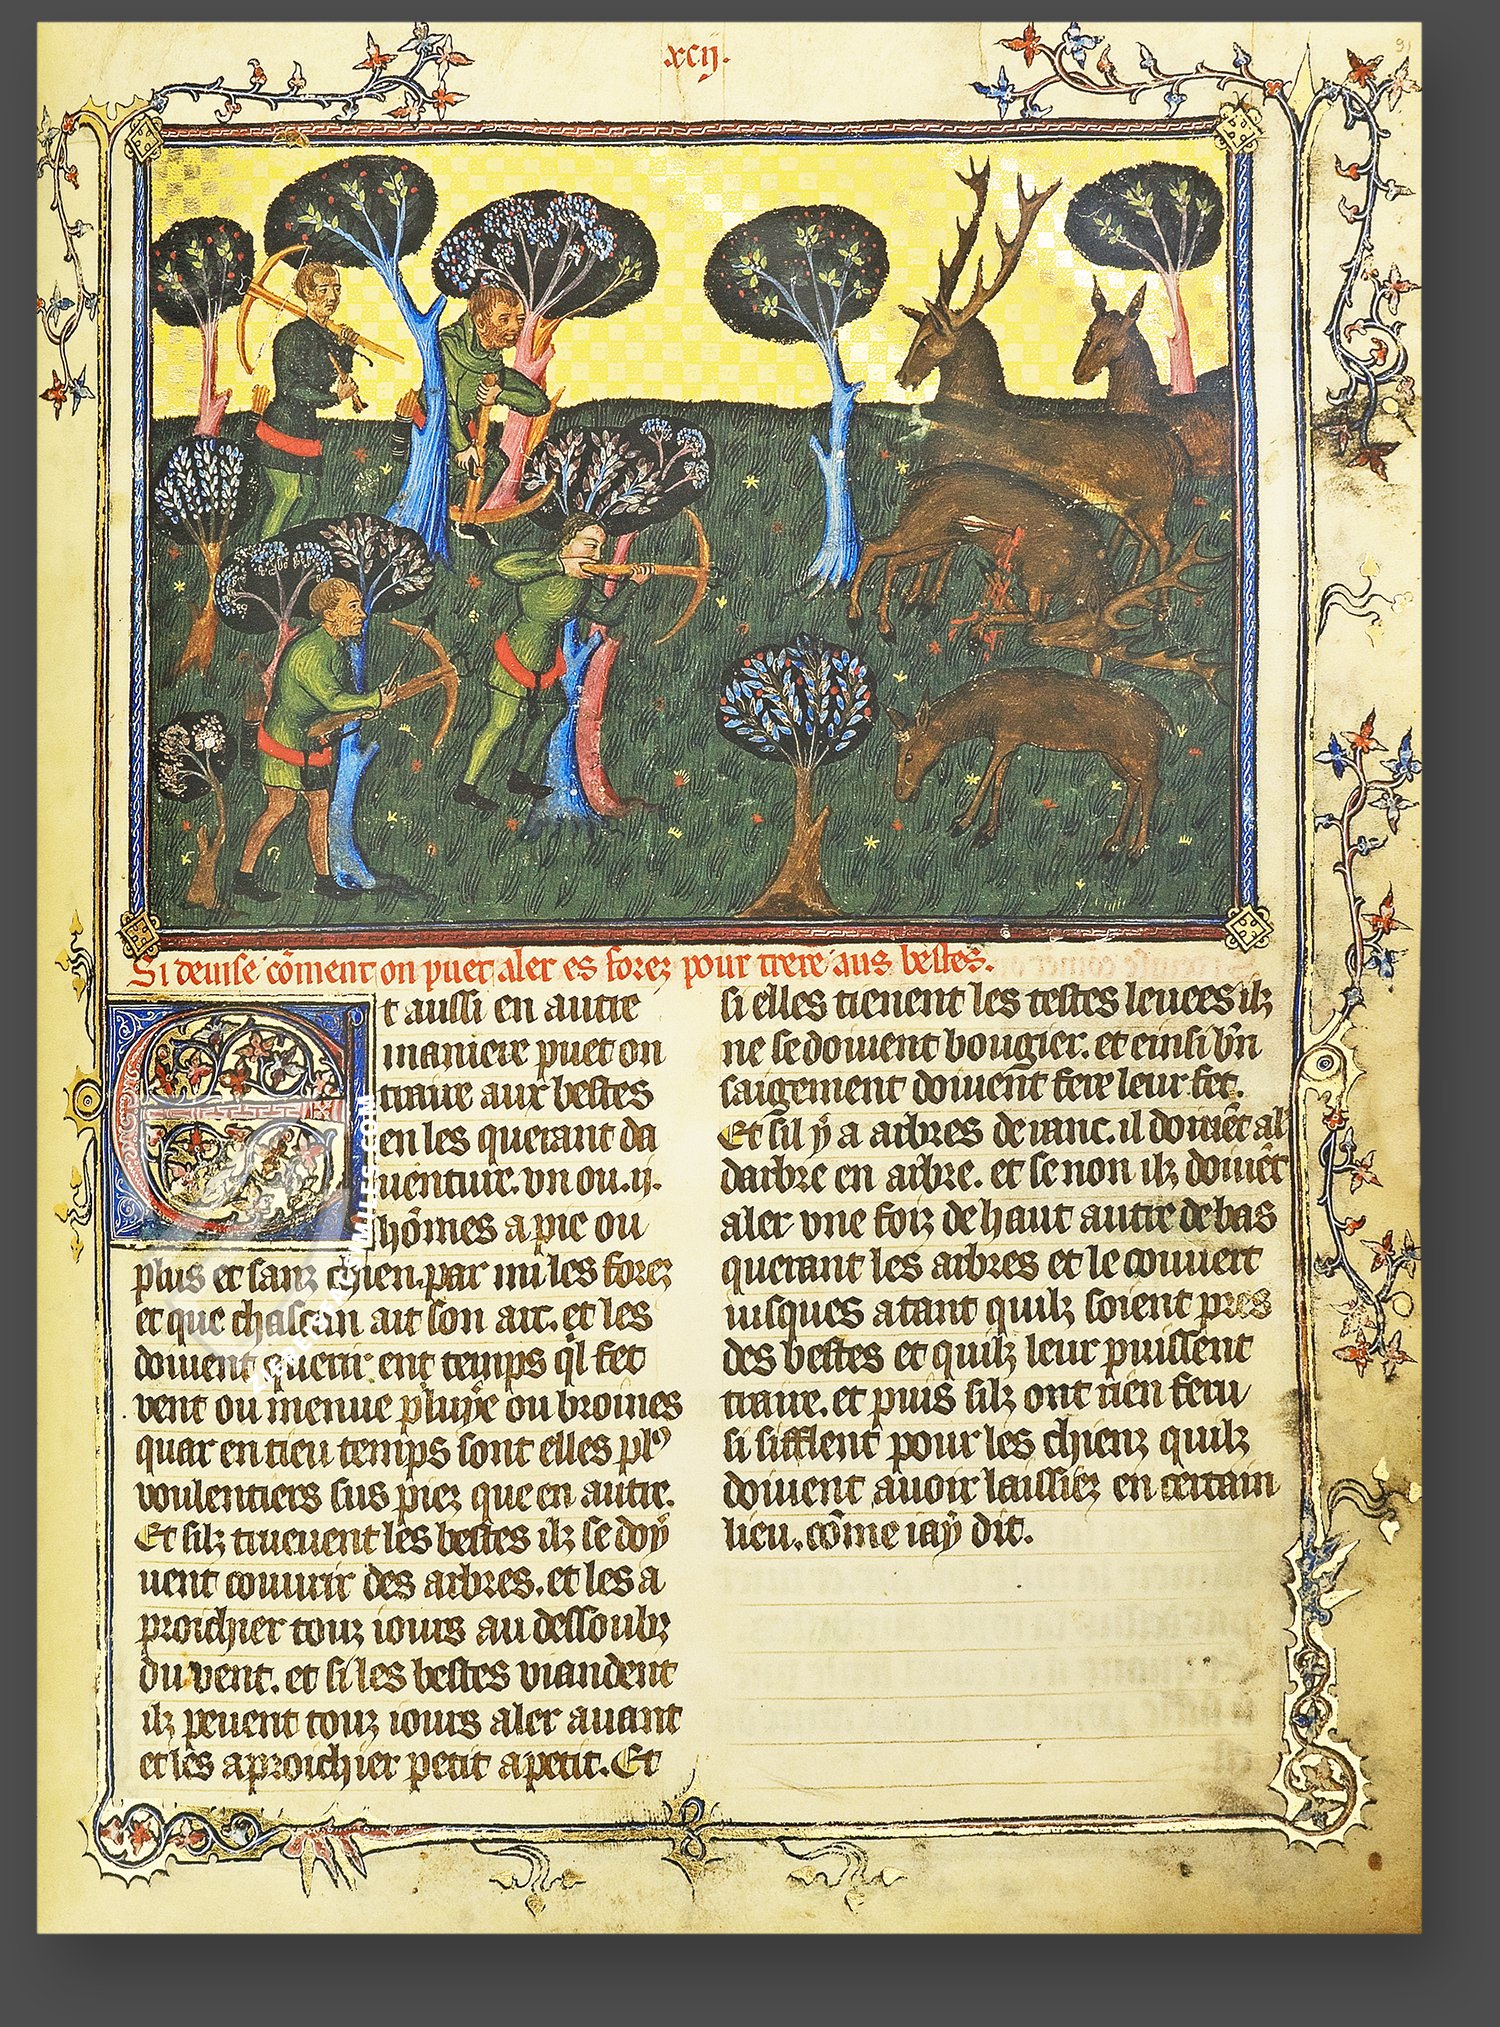 xcij.
Si deuise cõment on puet aler es forez pour trere aus bestes.
Et aussi en autre
maniere puet on
traire aux bestes
en les querant da
uenture. vn ou .ij.
hõmes a pie ou
plus et sanz chien. par mi les forez
et que chascun ait son arc. et les
doiuent querir ent temps ql fet
vent ou menue pluye ou broines
quar en tieu temps sont elles plꝰ
voulentiers sus piez que en autre.
Et silz trueuent les bestes ilz se doy
uent couurir des arbres. et les a
proichier touz iours au dessoubz
du vent. et si les bestes viandent
ilz peuent touz iours aler auant
et les aproichier petit a petit. Et
si elles tienent les testes leuees ilz
ne se doiuent bougier. et einsi bñ
saigement doiuent fere leur fet.
Et sil y a arbres de ranc. il doiuẽt al'
darbre en arbre. et se non ilz doiuẽt
aler vne foiz de haut autre de bas
querant les arbres et le couuert
iusques atant quilz soient pres
des bestes et quilz leur puissent
traire. et puis silz ont rien feru
si sifflent pour les chienz quilz
doiuent auoir laissiez en certain
lieu. cõme iay dit.